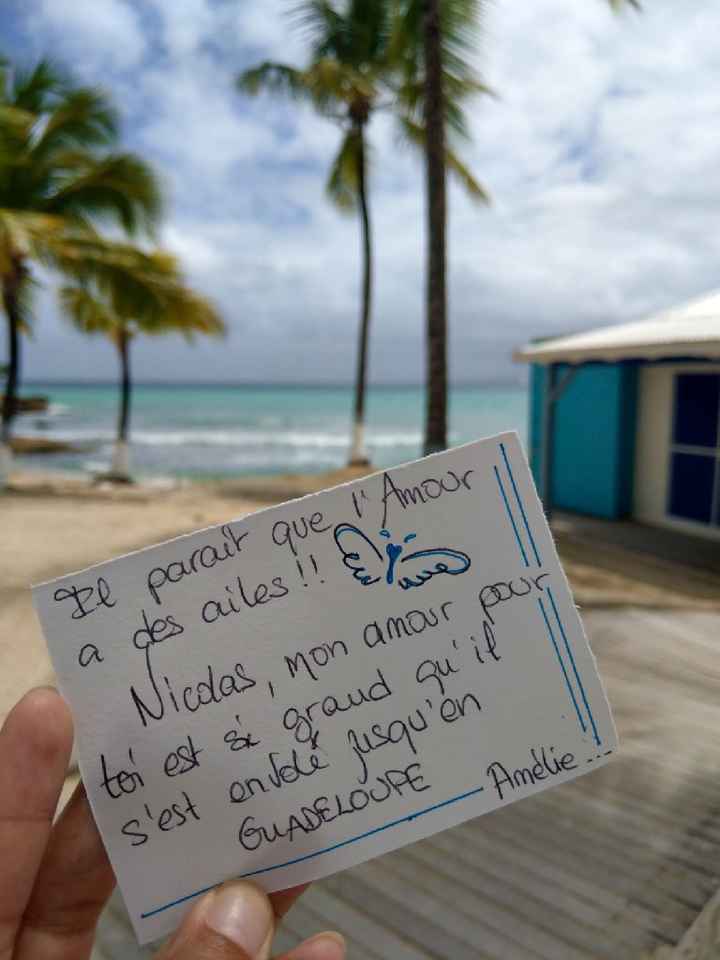 Il parait que l'Amour
a des ailes !!
Nicolas, mon amour pour
toi est si grand qu'il
s'est envolé jusqu'en
GUADELOUPE
Amélie...